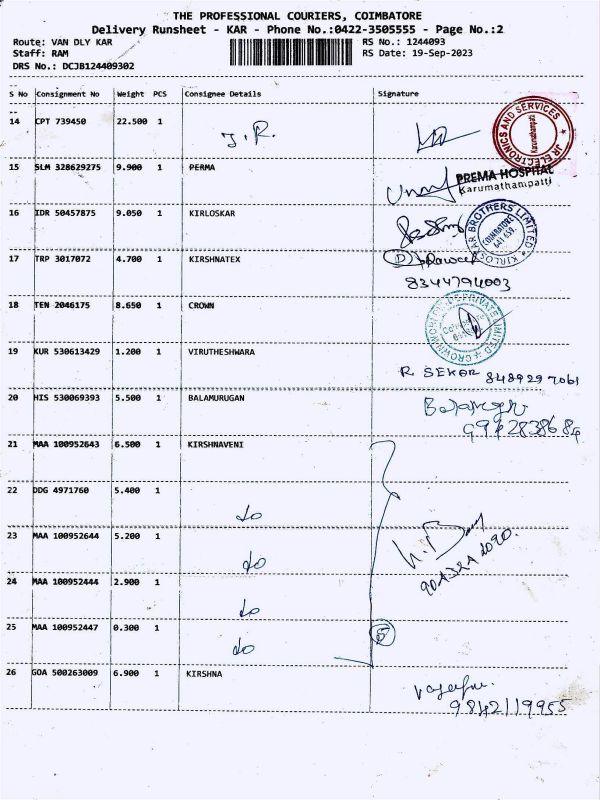 THE PROFESSIONAL COURIERS, COIMBATORE
Delivery Runsheet - KAR - Phone No.:0422-3505555 - Page No.:2
Route: VAN DLY KAR RS No.: 1244093
Staff: RAM RS Date: 19-Sep-2023
DRS No.: DCJB124409302
S No Consignment No Weight PCS Consignee Details Signature
14 CPT 739450 22.500 1 J.R.
JR ELECTRONICS AND SERVICES
Karumathampatti
15 SLM 328629275 9.900 1 PERMA
PREMA HOSPITAL
Karumathampatti
16 IDR 50457875 9.050 1 KIRLOSKAR
KIRLOSKAR BROTHERS LIMITED
COIMBATORE
641 659.
17 TRP 3017072 4.700 1 KIRSHNATEX
8344794003
18 TEN 2046175 8.650 1 CROWN
19 KUR 530613429 1.200 1 VIRUTHESHWARA
R. SEKAR 8489297061
20 HIS 530069393 5.500 1 BALAMURUGAN
21 MAA 100952643 6.500 1 KIRSHNAVENI
22 DDG 4971760 5.400 1 do
23 MAA 100952644 5.200 1 do
24 MAA 100952444 2.900 1 do
25 MAA 100952447 0.300 1 do 5
26 GOA 500263009 6.900 1 KIRSHNA
9842119955